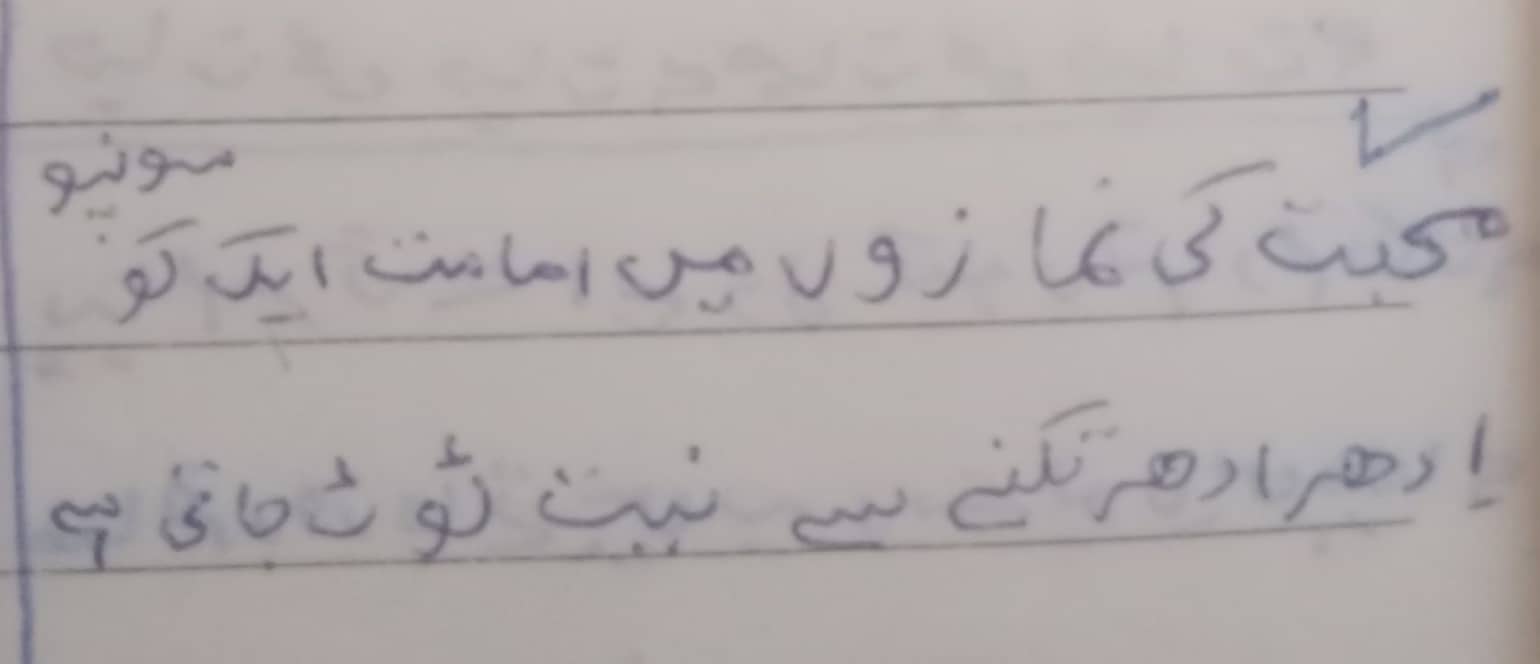 محبت کی نمازوں میں امامت ایک کو سونپو
اِدھر ادھر تکنے سے نیت ٹوٹ جاتی ہے